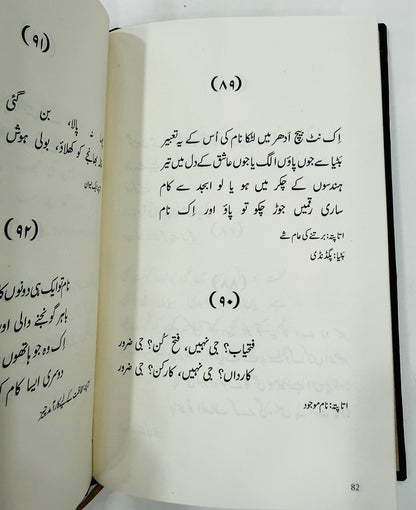 (۸۹)
اِک نٹ بیچ اَدھر میں لٹکا نام کی اُس کے یہ تعبیر
بٹیا سے جوں پاؤں الگ یا جوں عاشق کے دل میں تیر
ہندسوں کے چکر میں ہو یا لو ابجد سے کام
ساری رقمیں جوڑ چکو تو پاؤ اور اِک نام
اتا پتہ: برتنے کی عام شے
بٹیا: پگڈنڈی
(۹۰)
فتحیاب؟ جی نہیں، فتح کُن؟ جی ضرور
کارداں؟ جی نہیں، کارکن؟ جی ضرور
اتا پتہ: نام موجود
82
(۹۱)
نہ پالا، بن گئی
بھانجے کو کھلاؤ، بولی ہوش
(۹۲)
نام تو ایک ہی دونوں کا
باہر گونجنے والی اور
اِک وہ جو ہاتھوں
دوسری ایسا کام